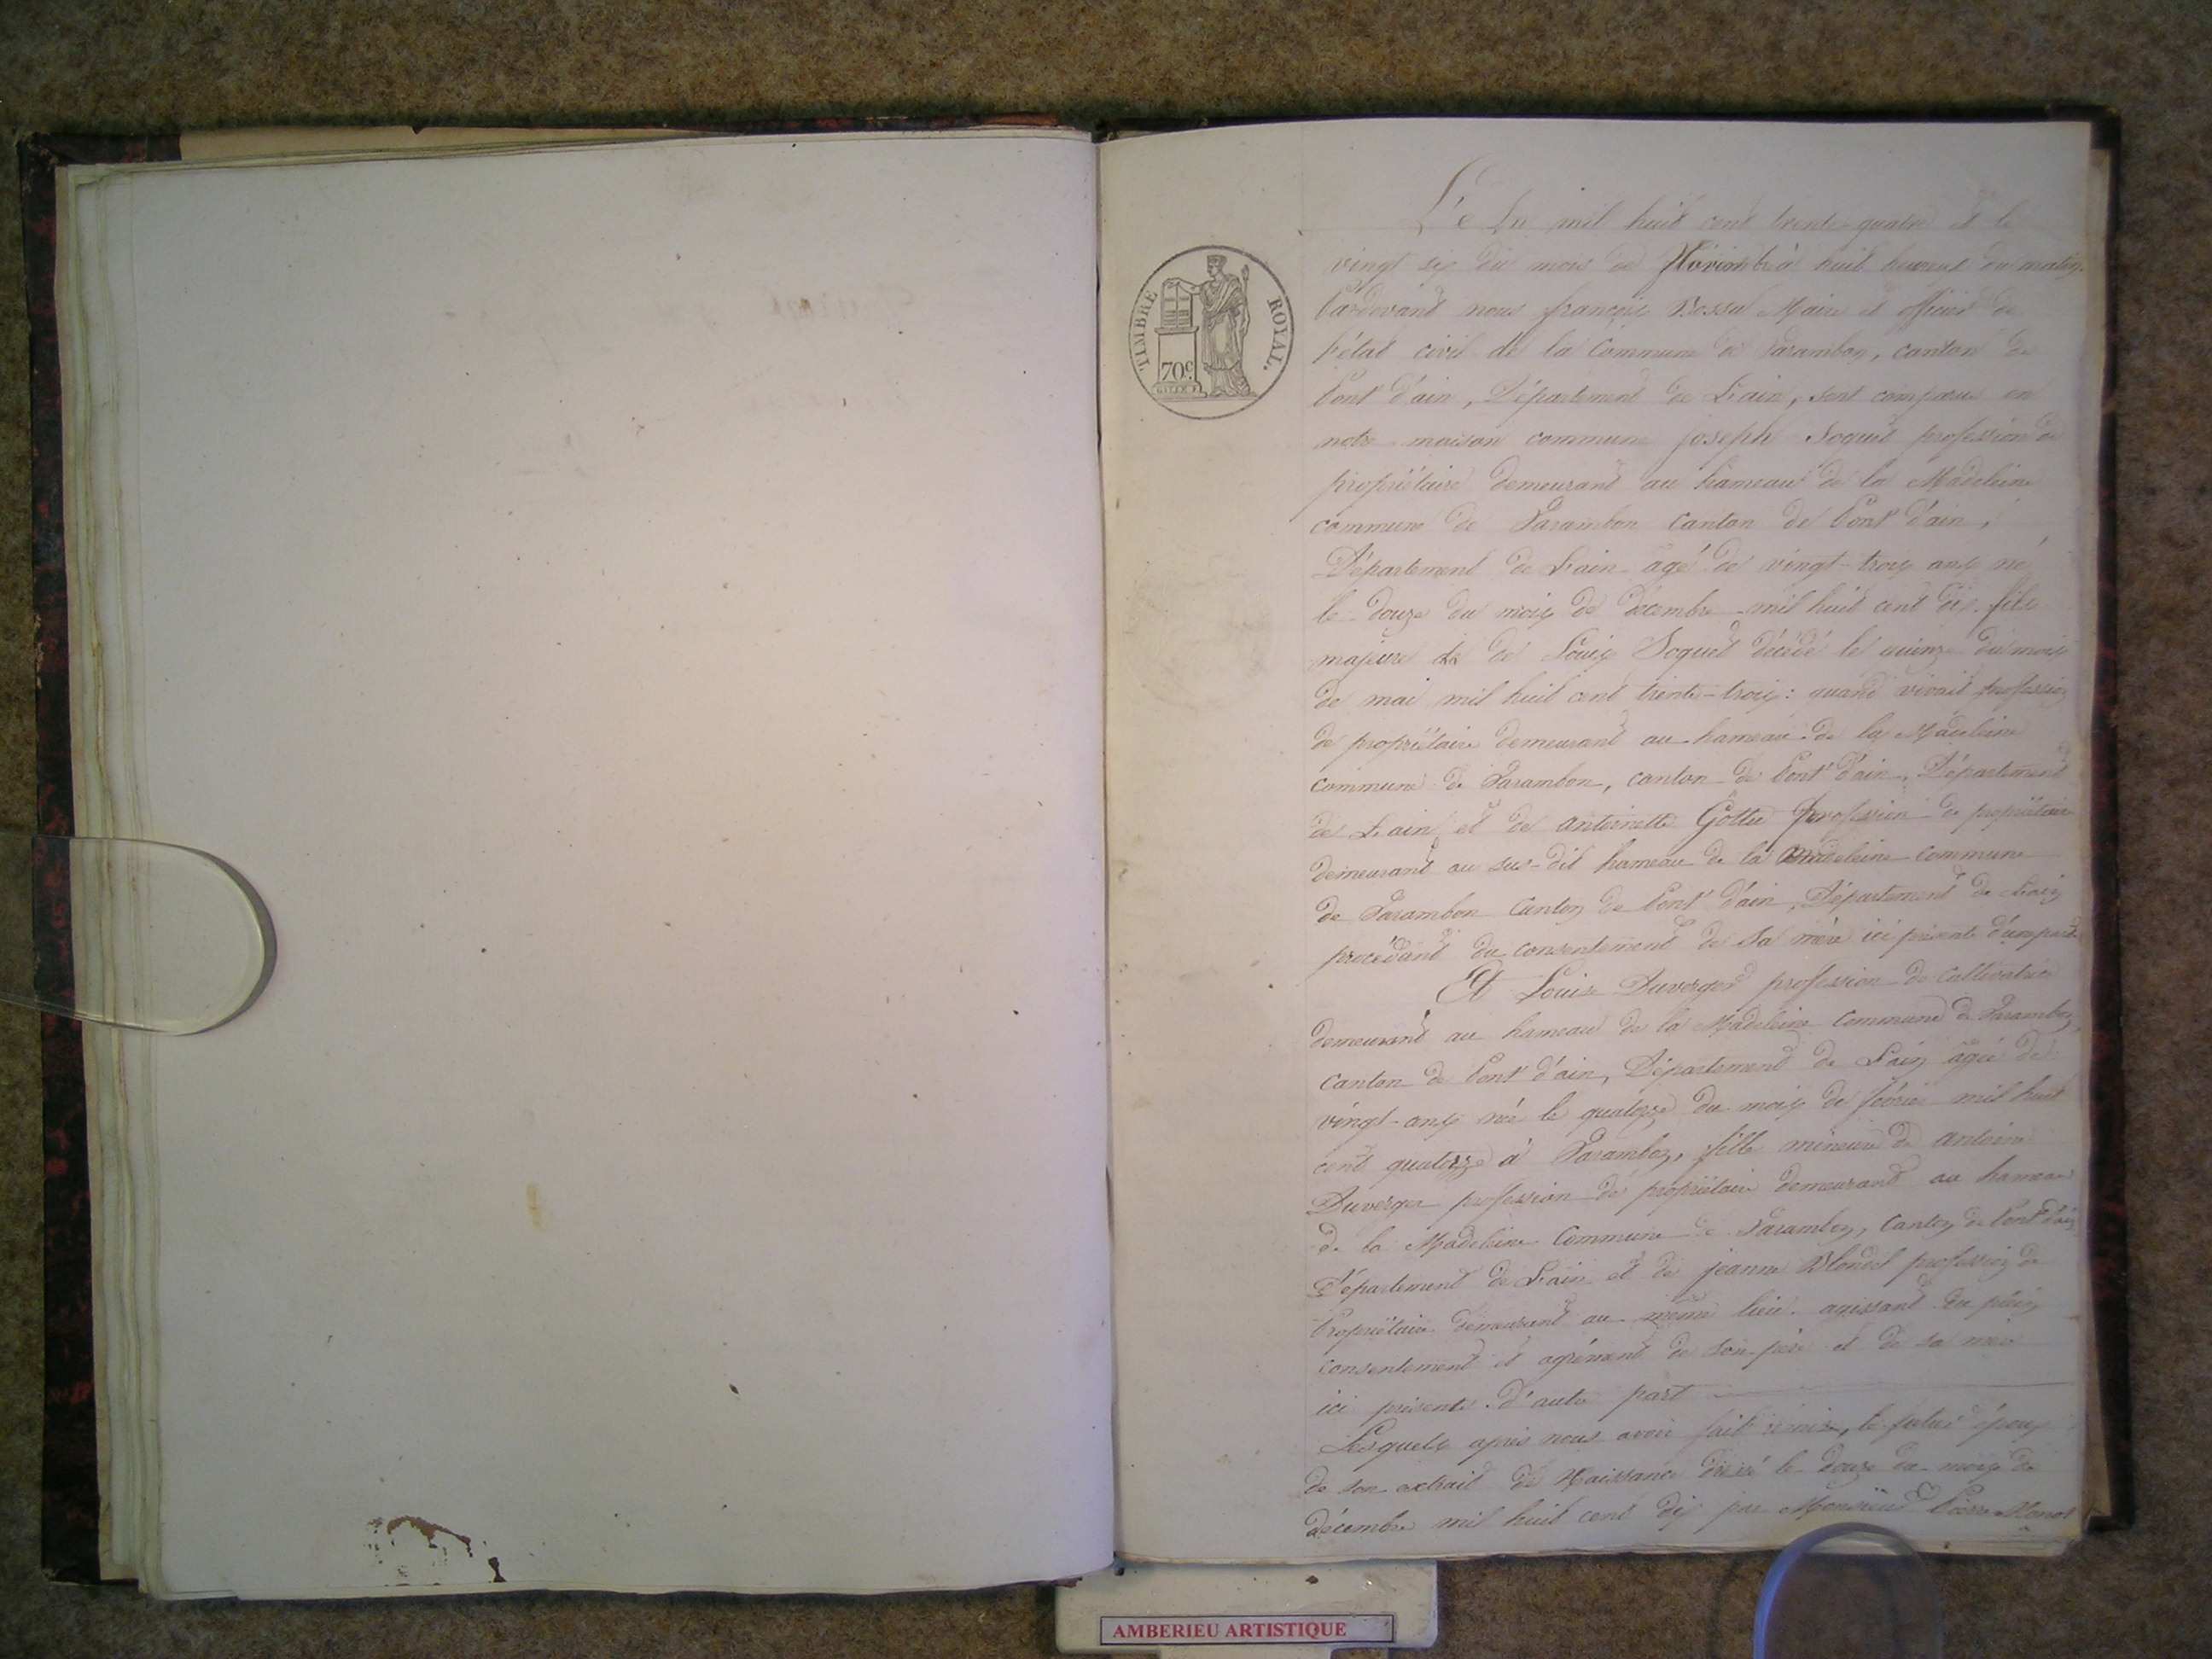 L'e An mil huit cent trente-quatre et le
vingt six du mois de Novembre à huit heures du matin
Pardevant nous françois Bossu Maire et officier de
l'état civil de la Commune de Varambon, canton de
Pont d'ain, Département de L'ain, sont comparus en
notre maison commune joseph Soquet profession de
propriétaire demeurant au hameau de la Madeleine
commune de Varambon canton de Pont d'ain,
Département de L'ain âgé de vingt-trois ans né
le douze du mois de décembre mil huit cent dix fils
majeur de de Louis Soquet décédé le quinze du mois
de mai mil huit cent trente-trois: quand vivait profession
de propriétaire demeurant au hameau de la Madeleine
commune de Varambon, canton de Pont d'ain, Département
de L'ain, et de antoinette profession de propriétaire
demeurant au sus-dit hameau de la Madeleine commune
de Varambon Canton de Pont d'ain, Département de L'ain
procédant du consentement de sa mère ici présente d'une part
Et Louise Duverger profession de Cultivatrice
demeurant au hameau de la Madeleine Commune de Varambon,
canton de Pont d'ain, Département de L'ain âgée de
vingt-ans née le quatorze du mois de février mil huit
cent quatorze à Varambon, fille mineure de antoine
Duverger profession de propriétaire demeurant au hameau
de la Madeleine Commune de Varambon, Canton de Pont d'ain
Département de L'ain et de jeanne Blondel profession de
Propriétaire demeurant au même lieu. agissant du plein
consentement et agrément de son père et de sa mère
ici présents. D'autre part
Lesquels après nous avoir fait remise, le futur époux
de son extrait de Naissance dressé le douze du mois de
décembre mil huit cent dix par Monsieur Pierre Monet
TIMBRE ROYAL.
70c
AMBERIEU ARTISTIQUE